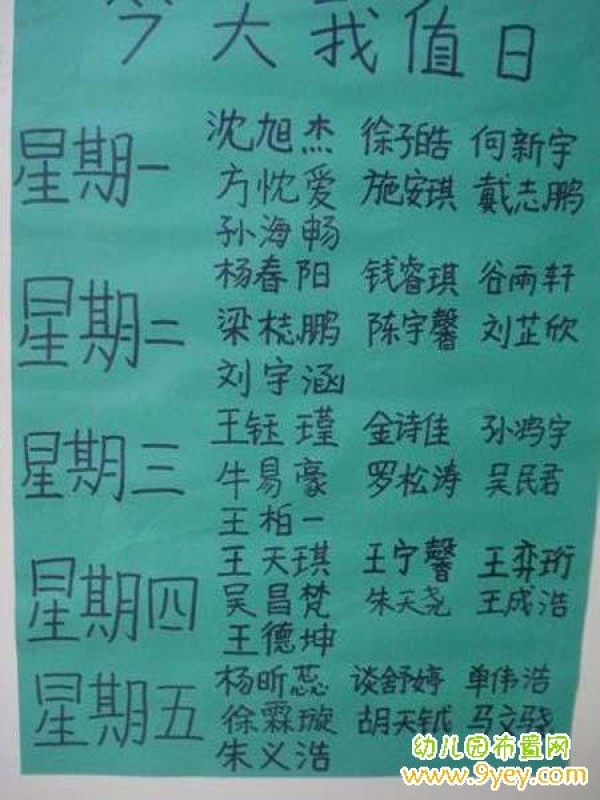 今天我值日
星期一
沈旭杰 徐子皓 何新宇
方忱爱 施安琪 戴志鹏
孙海畅
星期二
杨春阳 钱睿琪 谷雨轩
梁梽鹏 陈宇馨 刘芷欣
刘宇涵
星期三
王钰瑾 金诗佳 孙鸿宇
牛易豪 罗松涛 吴民君
王柏一
星期四
王天琪 王宁馨 王弈珩
吴昌梵 朱天尧 王成浩
王德坤
星期五
杨昕蕊 谈舒婷 单伟浩
徐霖璇 胡天钺 马文骁
朱义浩
幼儿园布置网
www.9yey.com